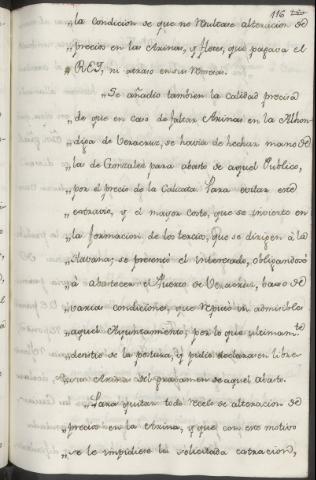 116
„la condicion de que no resultase alteracion de
„precios en las Arinas, y flores, que pagava el
„REY, ni atraso en sus Remesas.
„Se añadio tambien la calidad precisa
„de que en caso de faltar Arinas en la Alhon-
„diga de Veracruz, se havia de hechar mano de
„la de Gonzalez para abasto de aquel Publico,
„por el precio de la Calicata. Para evitar este
„extravio, y el mayor costo, que se invierte en
„la formacion de los tercios, que se dirigen á la
„Havana; se presentó el interesado, obligandose
„á abastecer el Puerto de Veracruz, baxo de
„varias condiciones, que reputó in admisibles
„aquel Ayuntamiento; por lo que ultimam.te
„desistio de la postura, y pidio declarasen libre
„su Arina del gravamen de aquel abasto.
„Para quitar todo recelo de alteracion de
„precios en la Arina, y que con este motivo
„se le impidiese la solicitada extraccion,